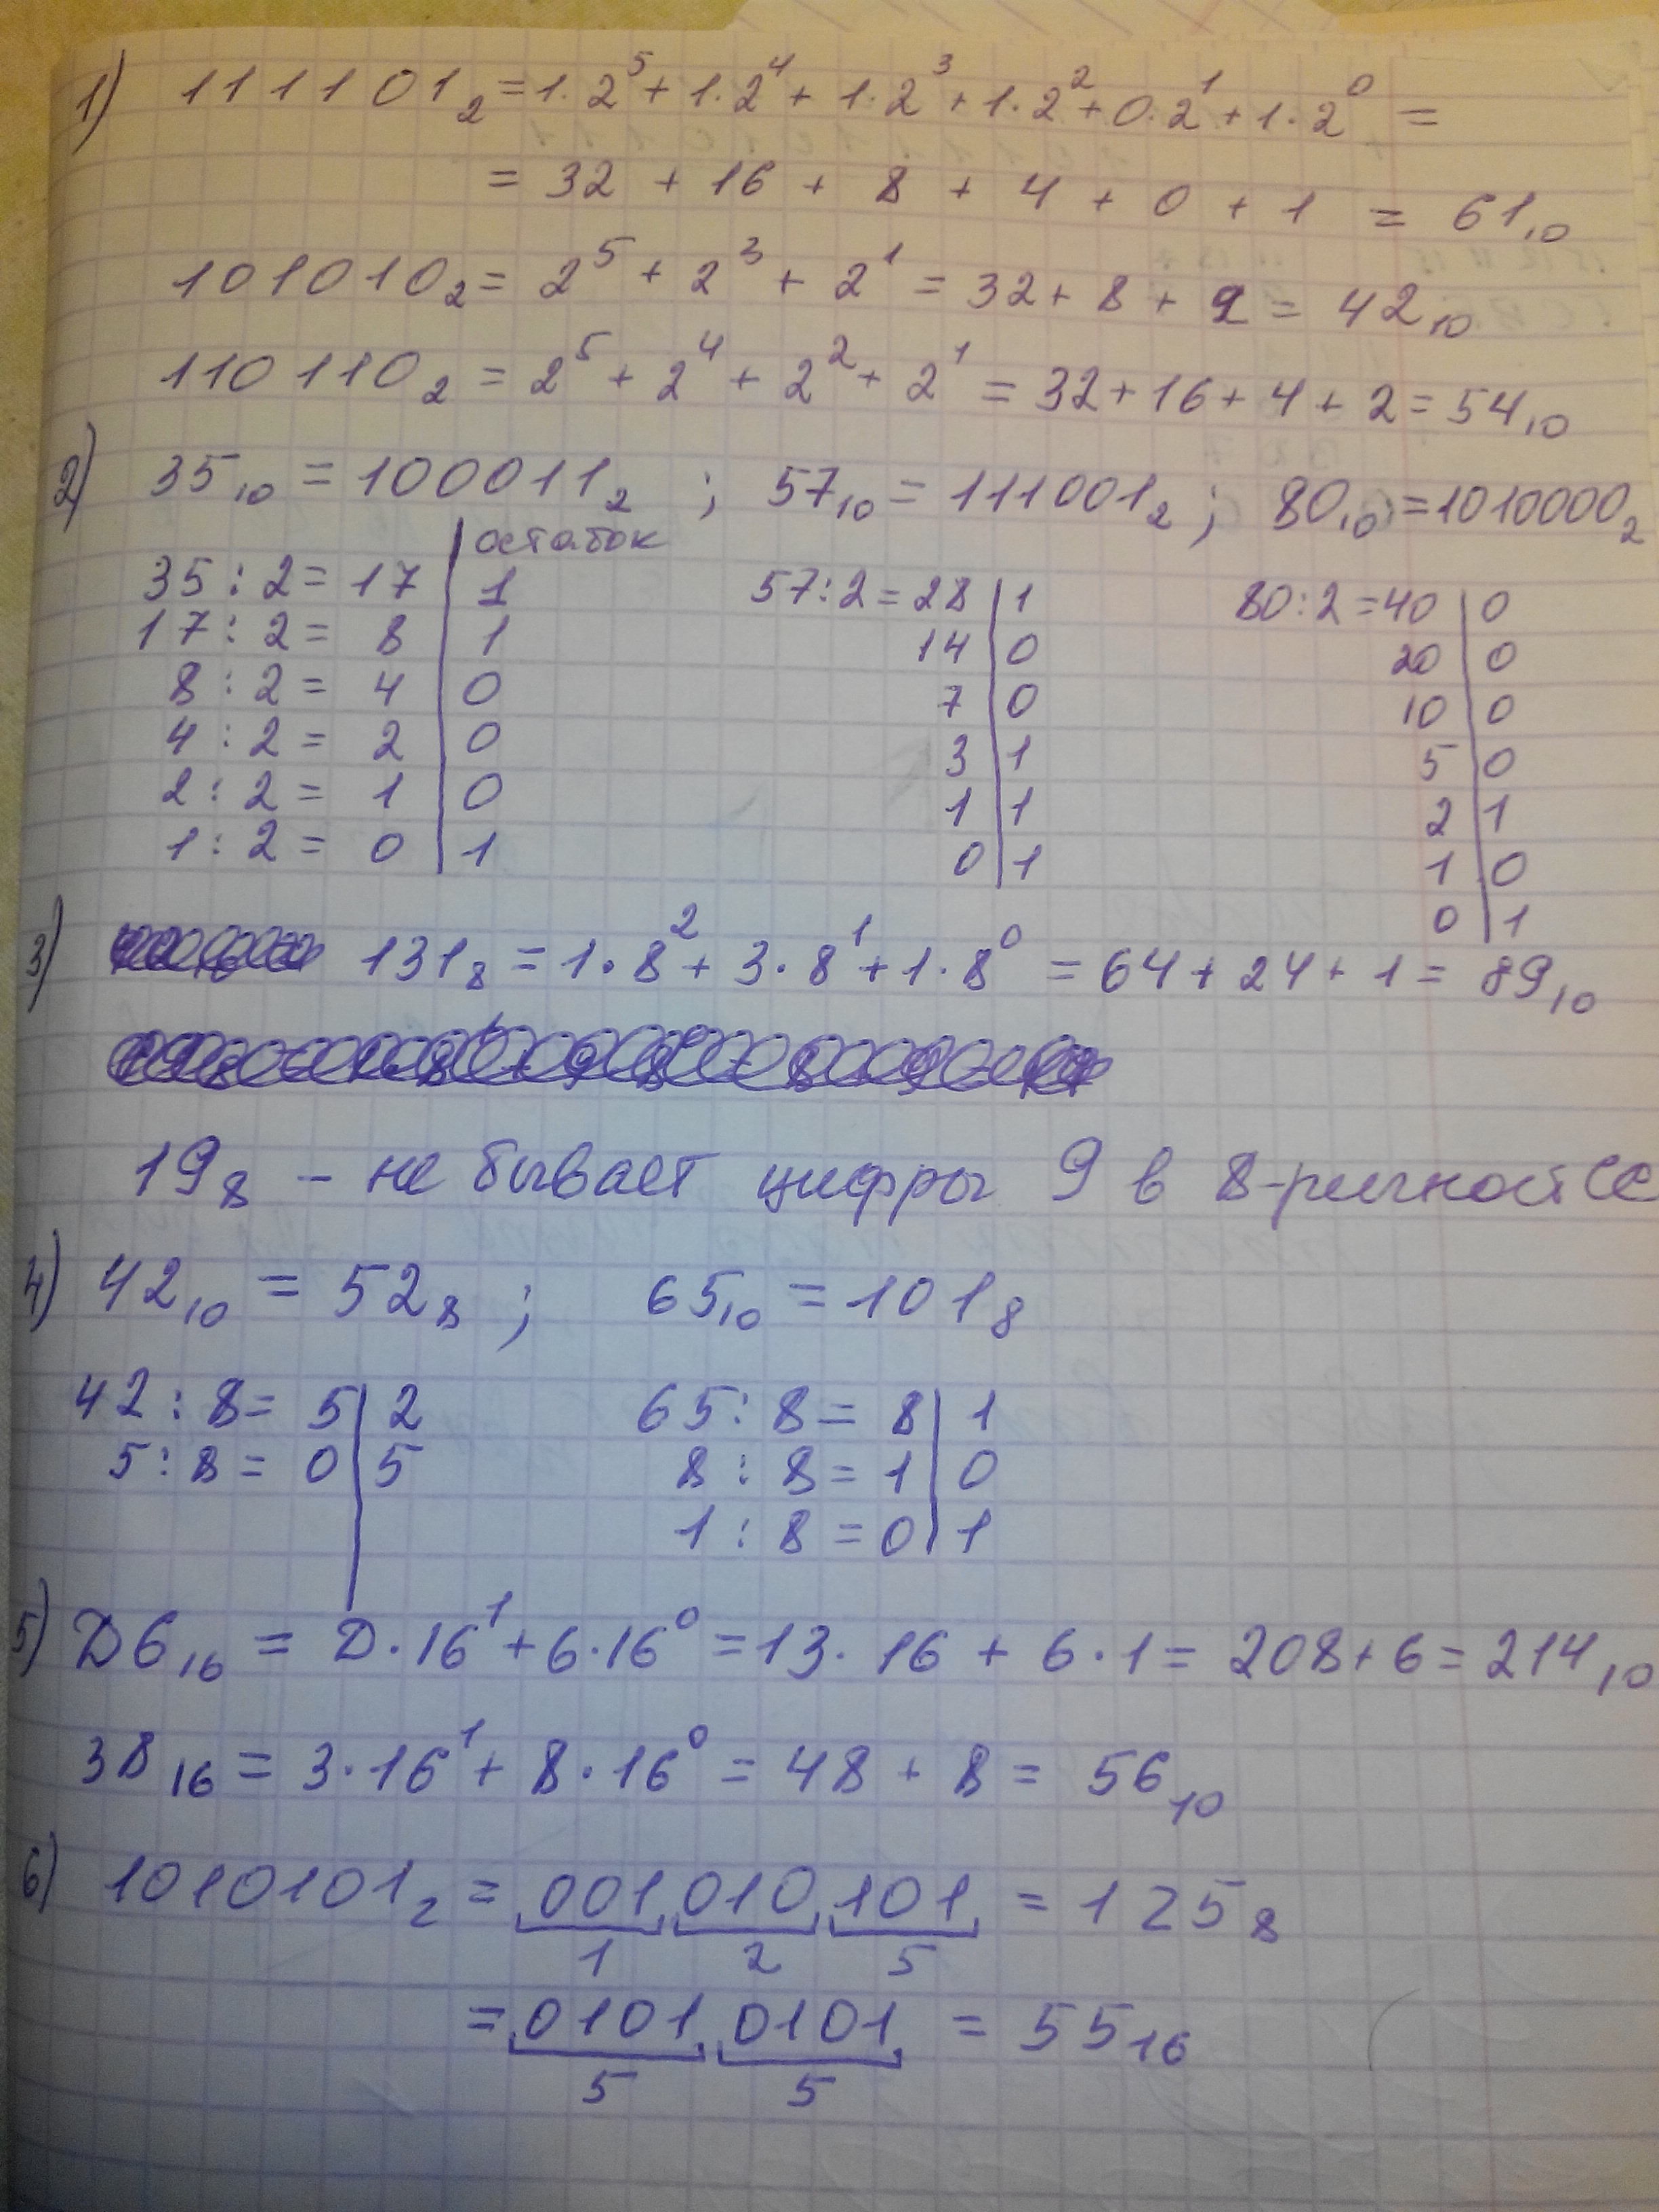 1) 111101₂ = 1·2⁵ + 1·2⁴ + 1·2³ + 1·2² + 0·2¹ + 1·2⁰ =
= 32 + 16 + 8 + 4 + 0 + 1 = 61₁₀
101010₂ = 2⁵ + 2³ + 2¹ = 32 + 8 + 2 = 42₁₀
110110₂ = 2⁵ + 2⁴ + 2² + 2¹ = 32 + 16 + 4 + 2 = 54₁₀
2) 35₁₀ = 100011₂ ; 57₁₀ = 111001₂ ; 80₁₀ = 1010000₂
остаток
35 : 2 = 17 | 1 57 : 2 = 28 | 1 80 : 2 = 40 | 0
17 : 2 = 8 | 1 14 | 0 20 | 0
8 : 2 = 4 | 0 7 | 0 10 | 0
4 : 2 = 2 | 0 3 | 1 5 | 0
2 : 2 = 1 | 0 1 | 1 2 | 1
1 : 2 = 0 | 1 0 | 1 1 | 0
0 | 1
3) 131₈ = 1·8² + 3·8¹ + 1·8⁰ = 64 + 24 + 1 = 89₁₀
19₈ – не бывает цифры 9 в 8-ричной СС
4) 42₁₀ = 52₈ ; 65₁₀ = 101₈
42 : 8 = 5 | 2 65 : 8 = 8 | 1
5 : 8 = 0 | 5 8 : 8 = 1 | 0
1 : 8 = 0 | 1
5) D6₁₆ = D·16¹ + 6·16⁰ = 13·16 + 6·1 = 208 + 6 = 214₁₀
38₁₆ = 3·16¹ + 8·16⁰ = 48 + 8 = 56₁₀
6) 1010101₂ = 001 010 101 = 125₈
1 2 5
= 0101 0101 = 55₁₆
5 5